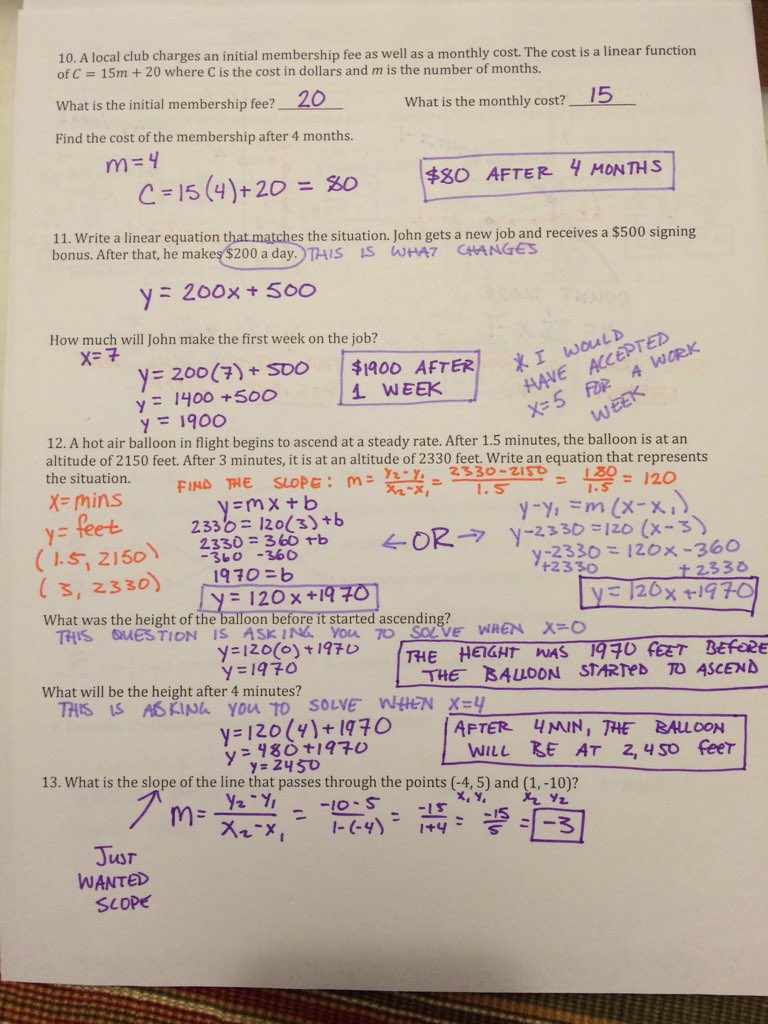 10. A local club charges an initial membership fee as well as a monthly cost. The cost is a linear function
of C = 15m + 20 where C is the cost in dollars and m is the number of months.
What is the initial membership fee? 20 What is the monthly cost? 15
Find the cost of the membership after 4 months.
m=4
C=15(4)+20 = 80
$80 AFTER 4 MONTHS
11. Write a linear equation that matches the situation. John gets a new job and receives a $500 signing
bonus. After that, he makes $200 a day. THIS IS WHAT CHANGES
y = 200x + 500
How much will John make the first week on the job?
x=7
y= 200(7) + 500
y = 1400 +500
y = 1900
$1900 AFTER
1 WEEK
* I WOULD
HAVE ACCEPTED
X=5 FOR A WORK
WEEK
12. A hot air balloon in flight begins to ascend at a steady rate. After 1.5 minutes, the balloon is at an
altitude of 2150 feet. After 3 minutes, it is at an altitude of 2330 feet. Write an equation that represents
the situation. FIND THE SLOPE: m= y₂-y₁/x₂-x₁ = 2330-2150/1.5 = 180/1.5 = 120
x=mins
y= feet
(1.5, 2150)
(3, 2330)
y=mx+b
2330=120(3)+b
2330 = 360 +b
-360 -360
1970 =b
y= 120x+1970
← OR →
y-y₁=m(x-x₁)
y-2330=120(x-3)
y-2330 = 120x-360
+2330 +2330
y=120x+1970
What was the height of the balloon before it started ascending?
THIS QUESTION IS ASKING YOU TO SOLVE WHEN X=0
y=120(0)+1970
y=1970
THE HEIGHT WAS 1970 FEET BEFORE
THE BALLOON STARTED TO ASCEND
What will be the height after 4 minutes?
THIS IS ASKING YOU TO SOLVE WHEN X=4
y=120(4)+1970
y= 480+1970
y= 2450
AFTER 4MIN, THE BALLOON
WILL BE AT 2,450 FEET
13. What is the slope of the line that passes through the points (-4, 5) and (1, -10)?
x₁ y₁ x₂ y₂
m= y₂-y₁/x₂-x₁ = -10-5/1-(-4) = -15/1+4 = -15/5 = -3
JUST
WANTED
SLOPE